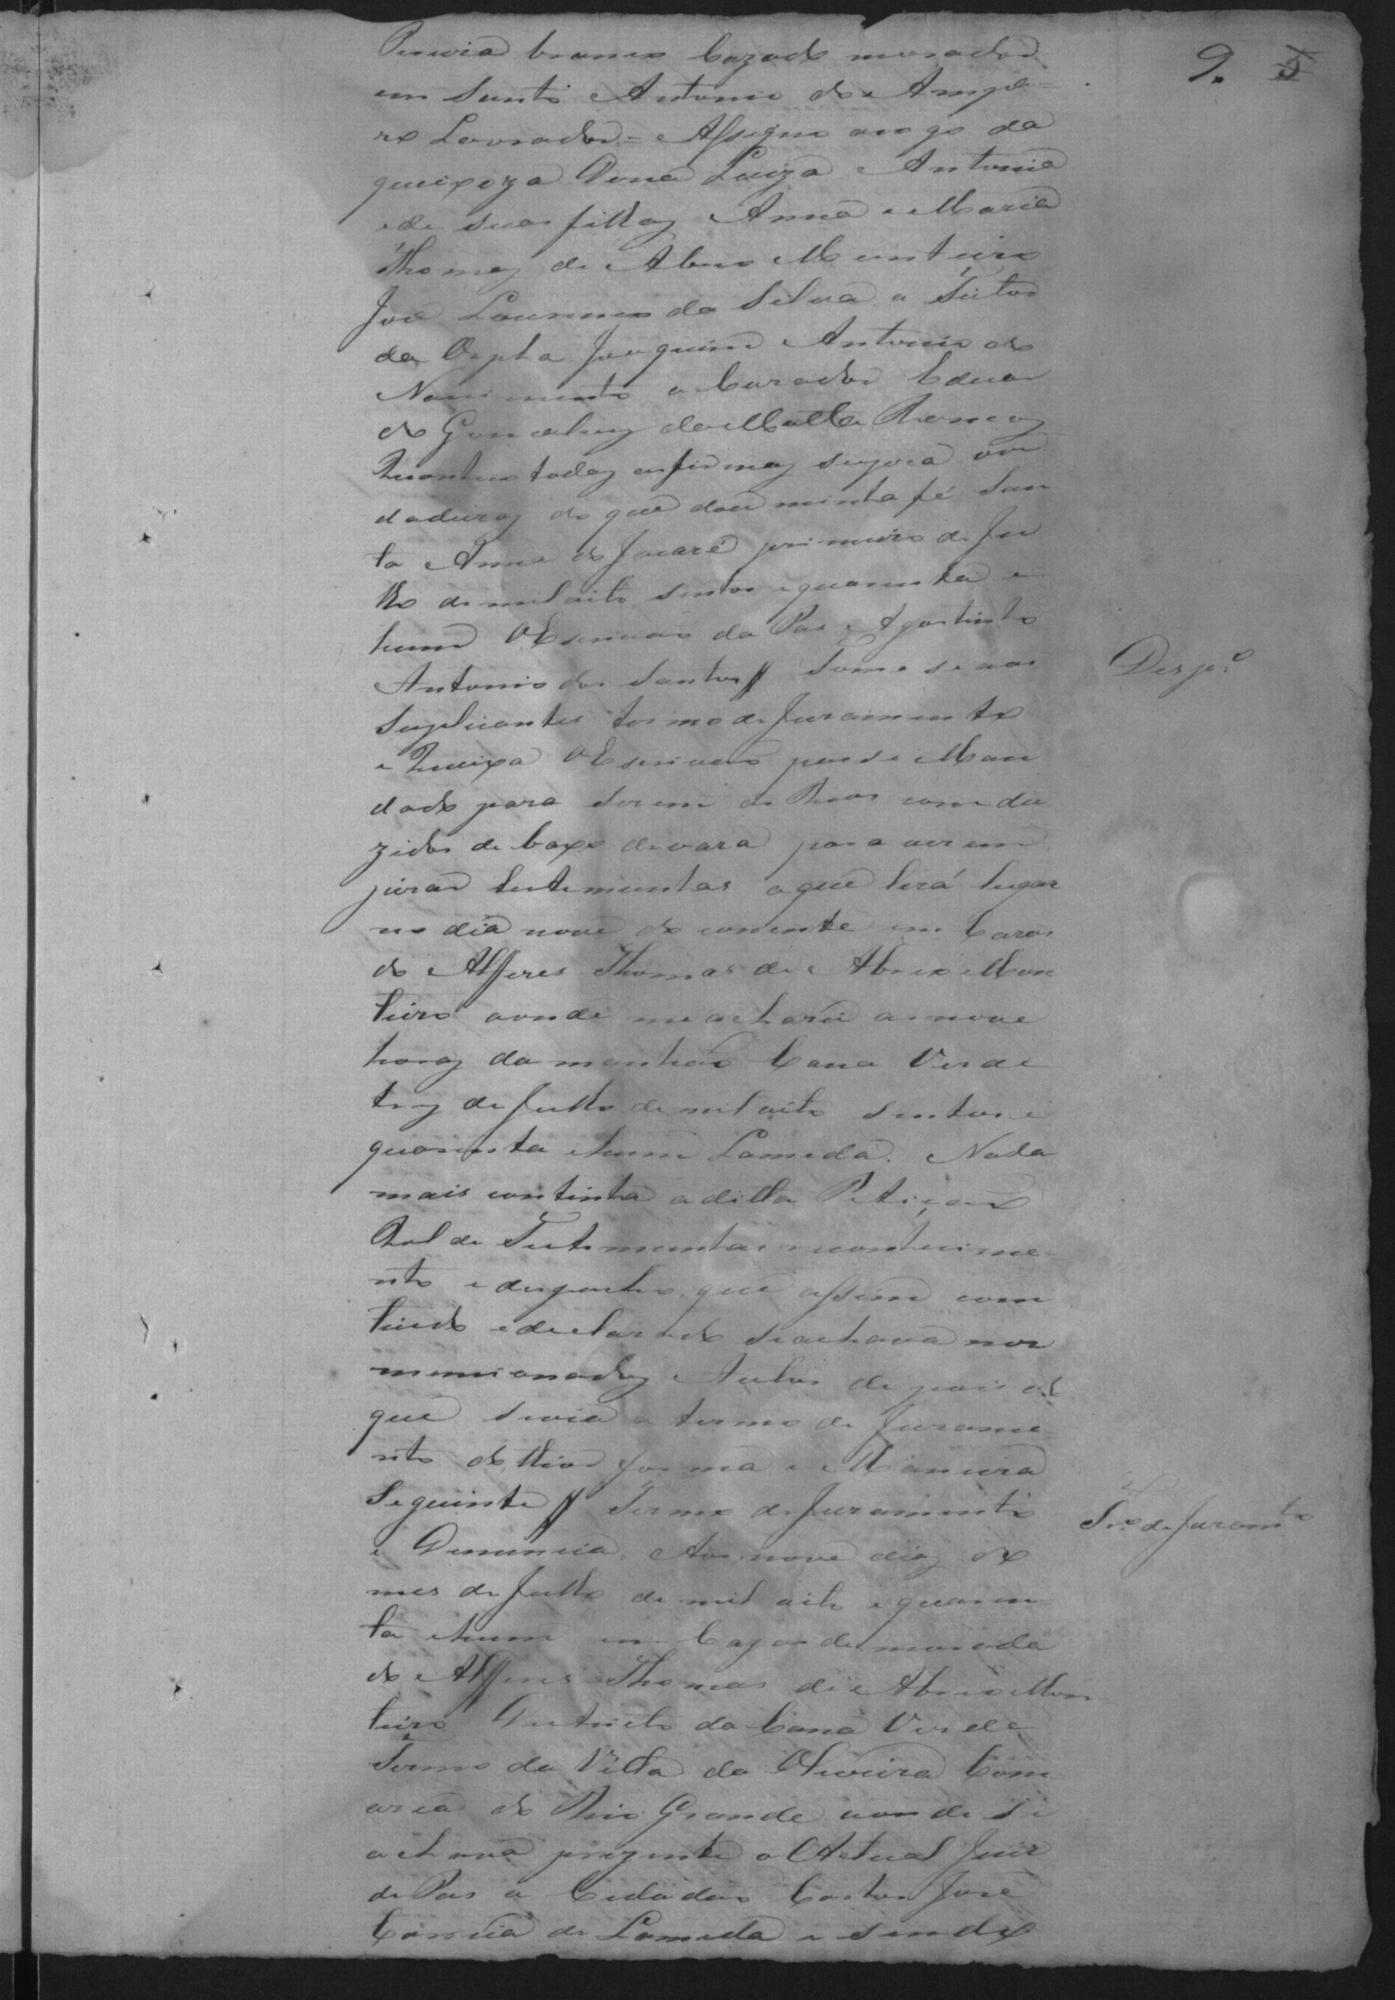 9. 5
Pereira branco Cazado morador
em Santo Antonio do Ampa-
ro Lavrador = Assigno arogo da
queixoza Dona Luiza Antonia
e de suas filhas Anna e Maria
Thomaz de Abreo Monteiro
José Lourenço da Silva o Tutor
da Orpha Joaquim Antonio do
Nascimento o Curador Eduar
do Gonçalves da Motta Ramos
todas as firmas
do que dou minha fé San
ta Anna do Jacaré primeiro de Ju
lho de mil oito sentos e quarenta e
hum O Escrivão da Paz Agostinho
Antonio dos Santos // Tome se aos
Suplicantes termo de Juramento
e Queixa O Escrivão passe Man
dado para serem os Reos condu
zidos de baxo de vara para verem
jurar testemunhas o que terá lugar
no dia nove do corrente em Caza
do Alferes Thomas de Abreo Mon
teiro aonde me acharei as nove
horas da manhãa Cana Verde
tres de Julho de mil oito sentos e
quarenta e hum Lameda. Nada
mais continha a ditta Petição
Rol de Testemunhas reconhecime-
nto e despacho que assim com
tiudo e declarado se achava nos
mencionados Autos depois do
que seria o termo de Jurame
nto do theor forma e Maneira
Seguinte // Termo de Juramento
e Denuncia. Aos nove dias do
mes de Julho de mil oito e quaren
ta e hum em Cazas de morada
do Alferes Thomas de Abreo Mon
teiro Destricto da Cana Verde
Termo da Villa da Oliveira Com
arca do Rio Grande aonde se
achava prezente o Actual Juiz
de Pas o Cidadão Carlos José
Corrêa de Lameda e sendo
Desp.o
T.o de Juram.to